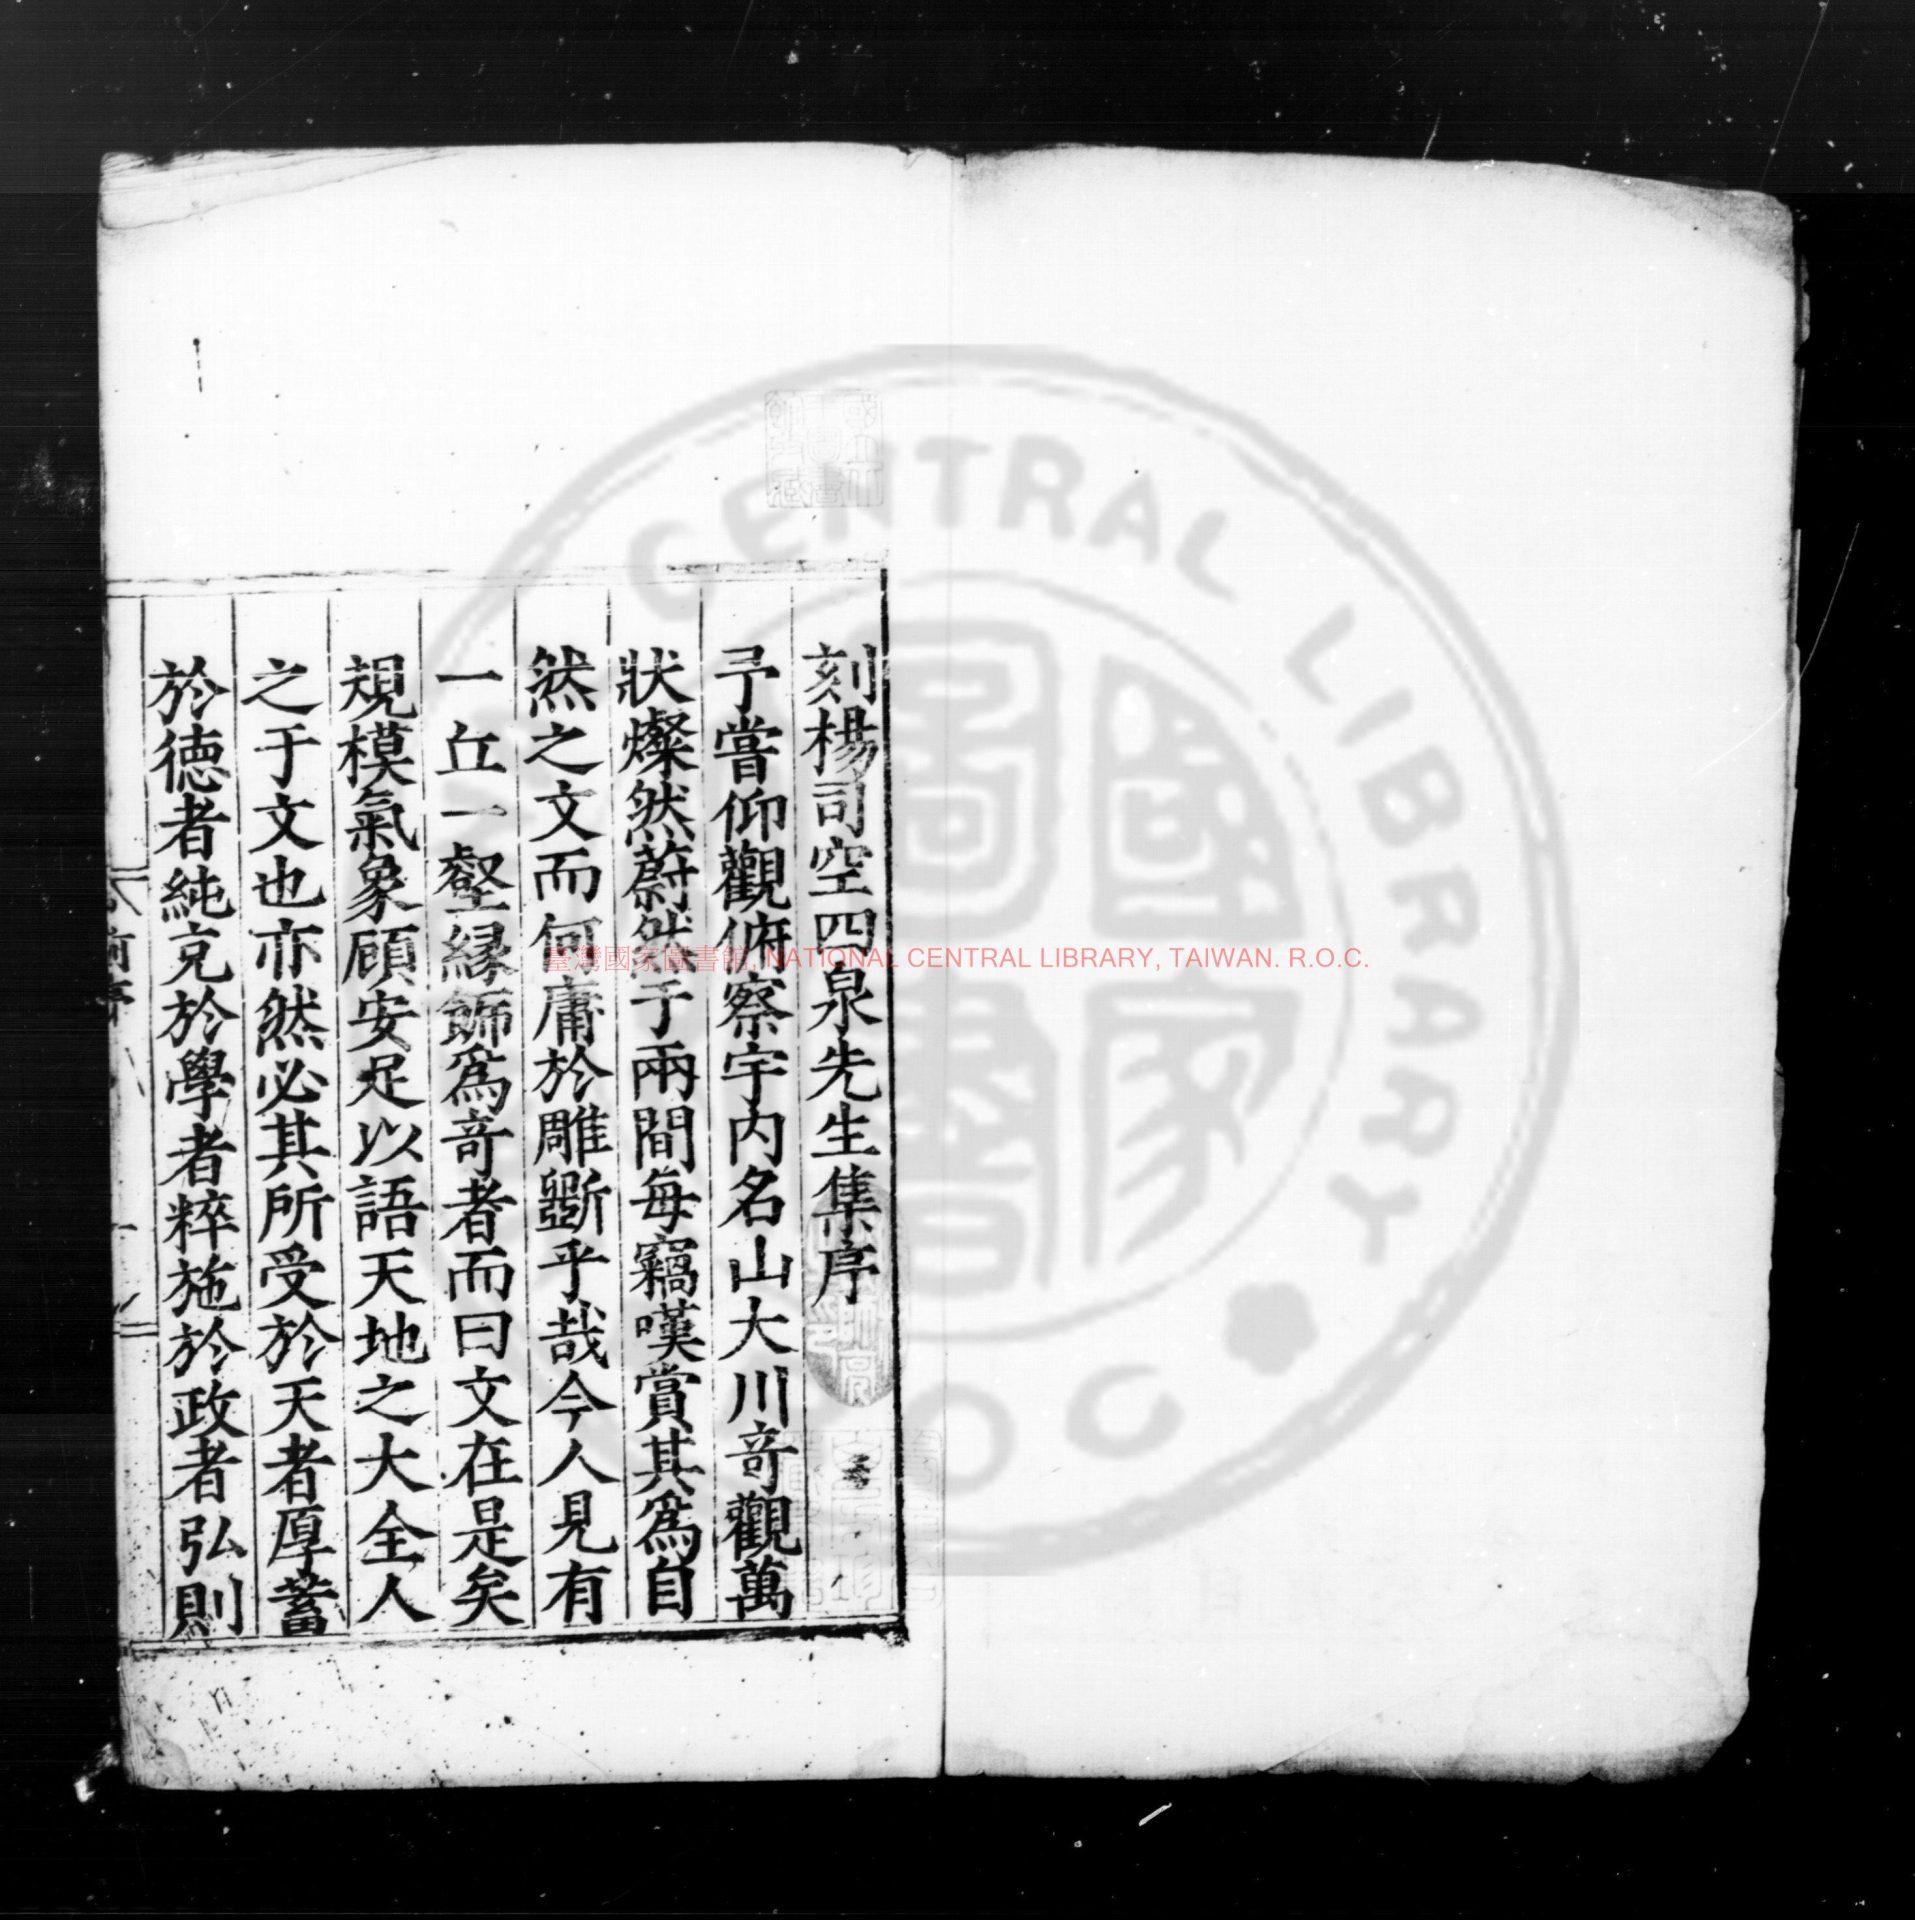 刻楊司空四泉先生集序
予嘗仰觀俯察宇内名山大川竒觀萬
狀燦然蔚然于兩間每竊嘆賞其爲自
然之文而何庸於雕斵乎哉今人見有
一丘一壑縁飾爲竒者而曰文在是矣
規模氣象顧安足以語天地之大全人
之于文也亦然必其所受於天者厚蓄
於德者純克於學者粹施於政者弘則
臺灣國家圖書館, NATIONAL CENTRAL LIBRARY, TAIWAN. R.O.C.
CENTRAL LIBRARY
國家圖書